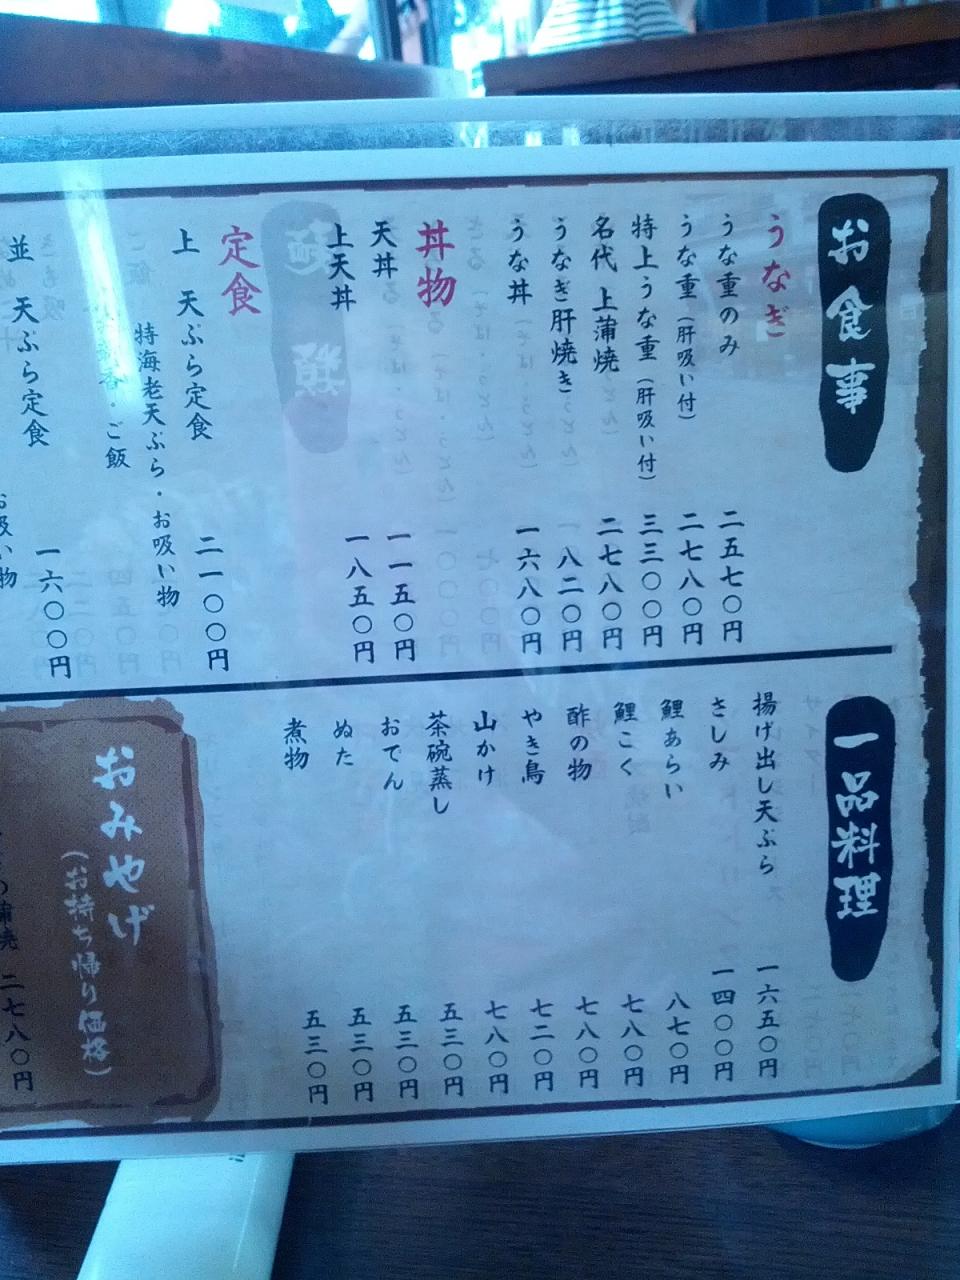 お食事
うなぎ
うな重のみ 二五七〇円
うな重（肝吸い付） 二七八〇円
特上うな重（肝吸い付） 三三〇〇円
名代 上蒲焼 二七八〇円
うなぎ肝焼き 八二〇円
うな丼 一六八〇円
丼物
天丼 一一五〇円
上天丼 一八五〇円
定食
上 天ぷら定食 二一〇〇円
特海老天ぷら・お吸い物
・ご飯
並 天ぷら定食 一六〇〇円
お吸い物
一品料理
揚げ出し天ぷら 一六五〇円
さしみ 一四〇〇円
鯉あらい 八七〇円
鯉こく 七八〇円
酢の物 七八〇円
やき鳥 七二〇円
山かけ 七八〇円
茶碗蒸し 五三〇円
おでん 五三〇円
ぬた 五三〇円
煮物 五三〇円
おみやげ
（お持ち帰り価格）
蒲焼 二七八〇円